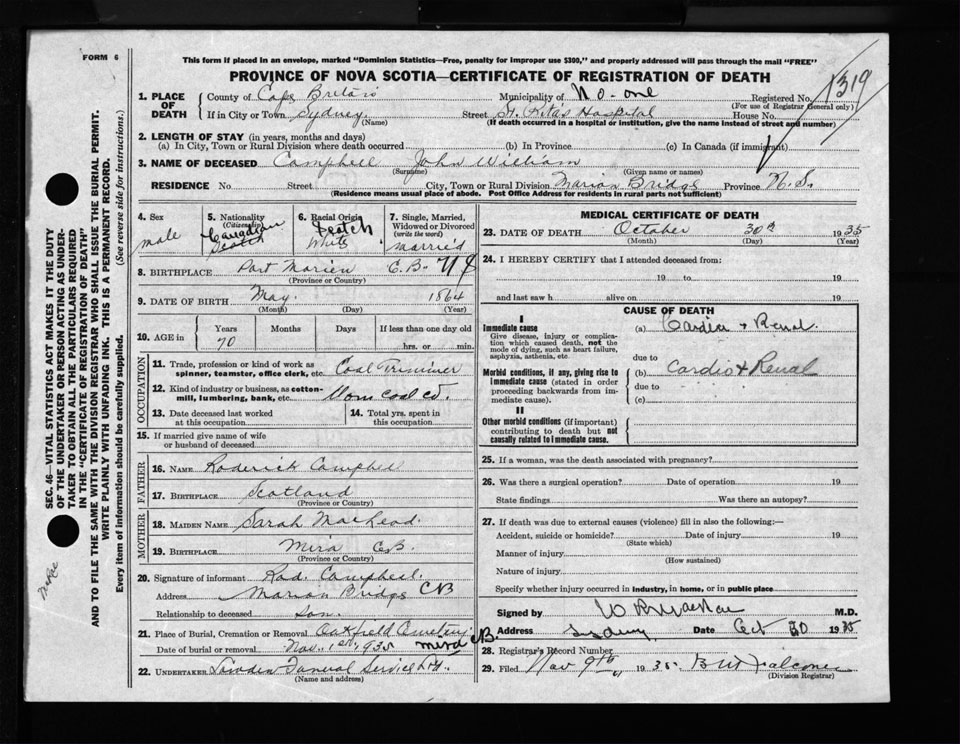 FORM 6
This form if placed in an envelope, marked "Dominion Statistics—Free, penalty for improper use $300," and properly addressed will pass through the mail "FREE"
PROVINCE OF NOVA SCOTIA—CERTIFICATE OF REGISTRATION OF DEATH
1319
1. PLACE OF DEATH County of Cape Breton Municipality of No-one Registered No.
(For use of Registrar General only)
If in City or Town Sydney. Street St. Rita's Hospital House No.
(Name) (If death occurred in a hospital or institution, give the name instead of street and number)
2. LENGTH OF STAY (in years, months and days)
(a) In City, Town or Rural Division where death occurred (b) In Province (c) In Canada (if immigrant)
3. NAME OF DECEASED Campbell John William
(Surname) (Given name or names)
RESIDENCE No. Street City, Town or Rural Division Marion Bridge Province N.S.
(Residence means usual place of abode. Post Office Address for residents in rural parts not sufficient)
4. Sex male
5. Nationality (Citizenship) Canadian Scotch
6. Racial Origin Scotch White
7. Single, Married, Widowed or Divorced (write the word) married
8. BIRTHPLACE Port Morien C.B. N S
(Province or Country)
9. DATE OF BIRTH May. 1864
(Month) (Day) (Year)
10. AGE in Years Months Days If less than one day old
70 hrs. or min.
OCCUPATION
11. Trade, profession or kind of work as spinner, teamster, office clerk, etc. Coal Trimmer
12. Kind of industry or business, as cotton-mill, lumbering, bank, etc. Dom coal co.
13. Date deceased last worked at this occupation
14. Total yrs. spent in this occupation
15. If married give name of wife or husband of deceased
FATHER
16. NAME Roderick Campbell
17. BIRTHPLACE Scotland
(Province or Country)
MOTHER
18. MAIDEN NAME Sarah
19. BIRTHPLACE Mira C.B.
(Province or Country)
20. Signature of informant Rod. Campbell.
Address Marion Bridge CB
Relationship to deceased Son.
21. Place of Burial, Cremation or Removal Oakfield Cemetery
Date of burial or removal Nov. 1st, 1935 Mira CB.
22. UNDERTAKER Funeral Service Ltd.
(Name and address)
MEDICAL CERTIFICATE OF DEATH
23. DATE OF DEATH October 30th 1935
(Month) (Day) (Year)
24. I HEREBY CERTIFY that I attended deceased from:
19 to 19
and last saw h alive on 19
CAUSE OF DEATH
I
Immediate cause (a) Cardio + Renal.
Give disease, injury or complication which caused death, not the mode of dying, such as heart failure, asphyxia, asthenia, etc.
due to
Morbid conditions, if any, giving rise to immediate cause (stated in order proceeding backwards from immediate cause). (b) Cardio + Renal
due to
(c)
II
Other morbid conditions (if important) contributing to death but not causally related to immediate cause.
25. If a woman, was the death associated with pregnancy?
26. Was there a surgical operation? Date of operation 19
State findings Was there an autopsy?
27. If death was due to external causes (violence) fill in also the following:—
Accident, suicide or homicide? Date of injury 19
(State which)
Manner of injury
(How sustained)
Nature of injury
Specify whether injury occurred in industry, in home, or in public place
Signed by M.D.
Address Sydney Date Oct 30 1935
28. Registrar's Record Number
29. Filed Nov 9th 1935 Falconer
(Division Registrar)
SEC. 46—VITAL STATISTICS ACT MAKES IT THE DUTY
OF THE UNDERTAKER OR PERSON ACTING AS UNDER-
TAKER TO OBTAIN ALL THE PARTICULARS REQUIRED
IN THE "CERTIFICATE OF REGISTRATION OF DEATH"
AND TO FILE THE SAME WITH THE DIVISION REGISTRAR WHO SHALL ISSUE THE BURIAL PERMIT.
WRITE PLAINLY WITH UNFADING INK. THIS IS A PERMANENT RECORD.
Every item of information should be carefully supplied. (See reverse side for instructions.)